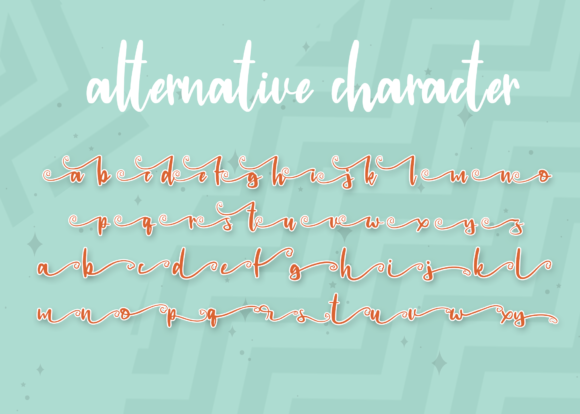 alternative character
a b c d e f g h i j k l m n o
p q r s t u v w x y z
a b c d e f g h i j k l
m n o p q r s t u v w x y